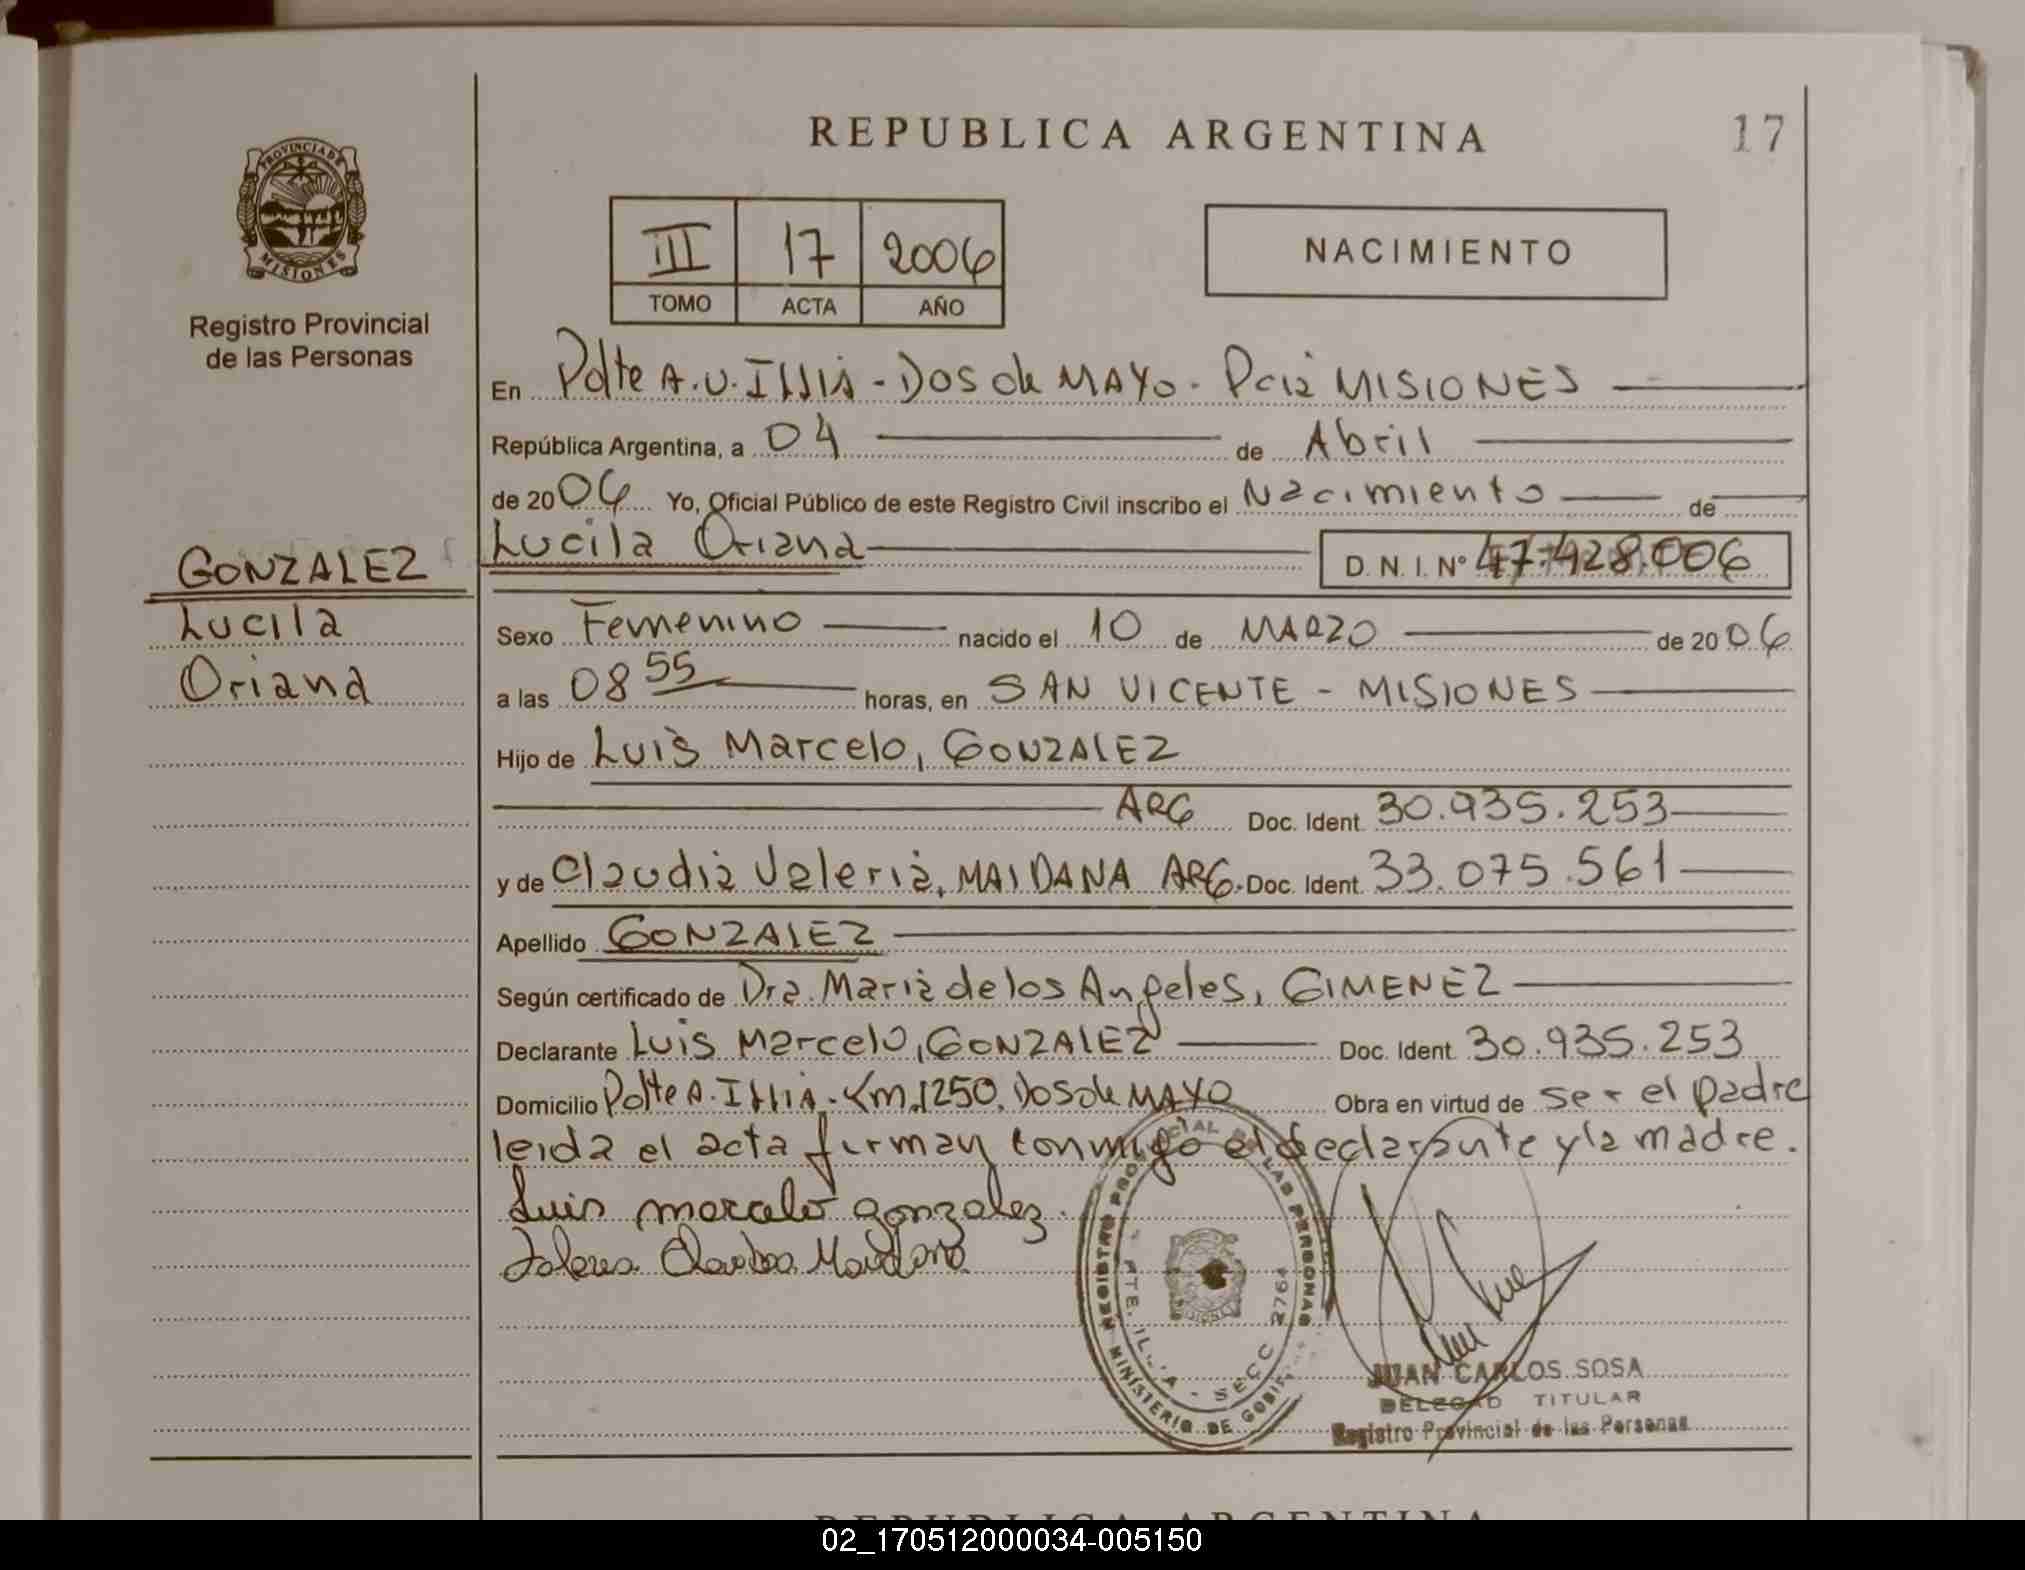 REPUBLICA ARGENTINA
17
PROVINCIA DE
MISIONES
Registro Provincial
de las Personas
III 17 2006
TOMO ACTA AÑO
NACIMIENTO
En Pdte A.U. Illia - Dos de MAYO - Pcia MISIONES
República Argentina, a 04 de Abril
de 2006 Yo, Oficial Público de este Registro Civil inscribo el Nacimiento de
Lucila Oriana D. N. I. Nº 47.428.006
GONZALEZ
Lucila
Oriana
Sexo Femenino nacido el 10 de MARZO de 2006
a las 08 55 horas, en SAN VICENTE - MISIONES
Hijo de Luis Marcelo, GONZALEZ
ARG Doc. Ident. 30.935.253
y de Claudia Valeria, MAIDANA ARG. Doc. Ident. 33.075.561
Apellido GONZALEZ
Según certificado de Dra. Maria de los Angeles, GIMENEZ
Declarante Luis Marcelo, GONZALEZ Doc. Ident. 30.935.253
Domicilio Pdte A. Illia - Km. 1250. Dos de MAYO Obra en virtud de ser el padre
leida el acta firman conmigo el declarante y la madre.
Luis marcelo gonzalez.
Claudia Maidana
REGISTRO PROVINCIAL DE LAS PERSONAS
MINISTERIO DE
SECC 2764
JUAN CARLOS SOSA
DELEGAD TITULAR
Registro Provincial de las Personas
REPUBLICA ARGENTINA
02_170512000034-005150